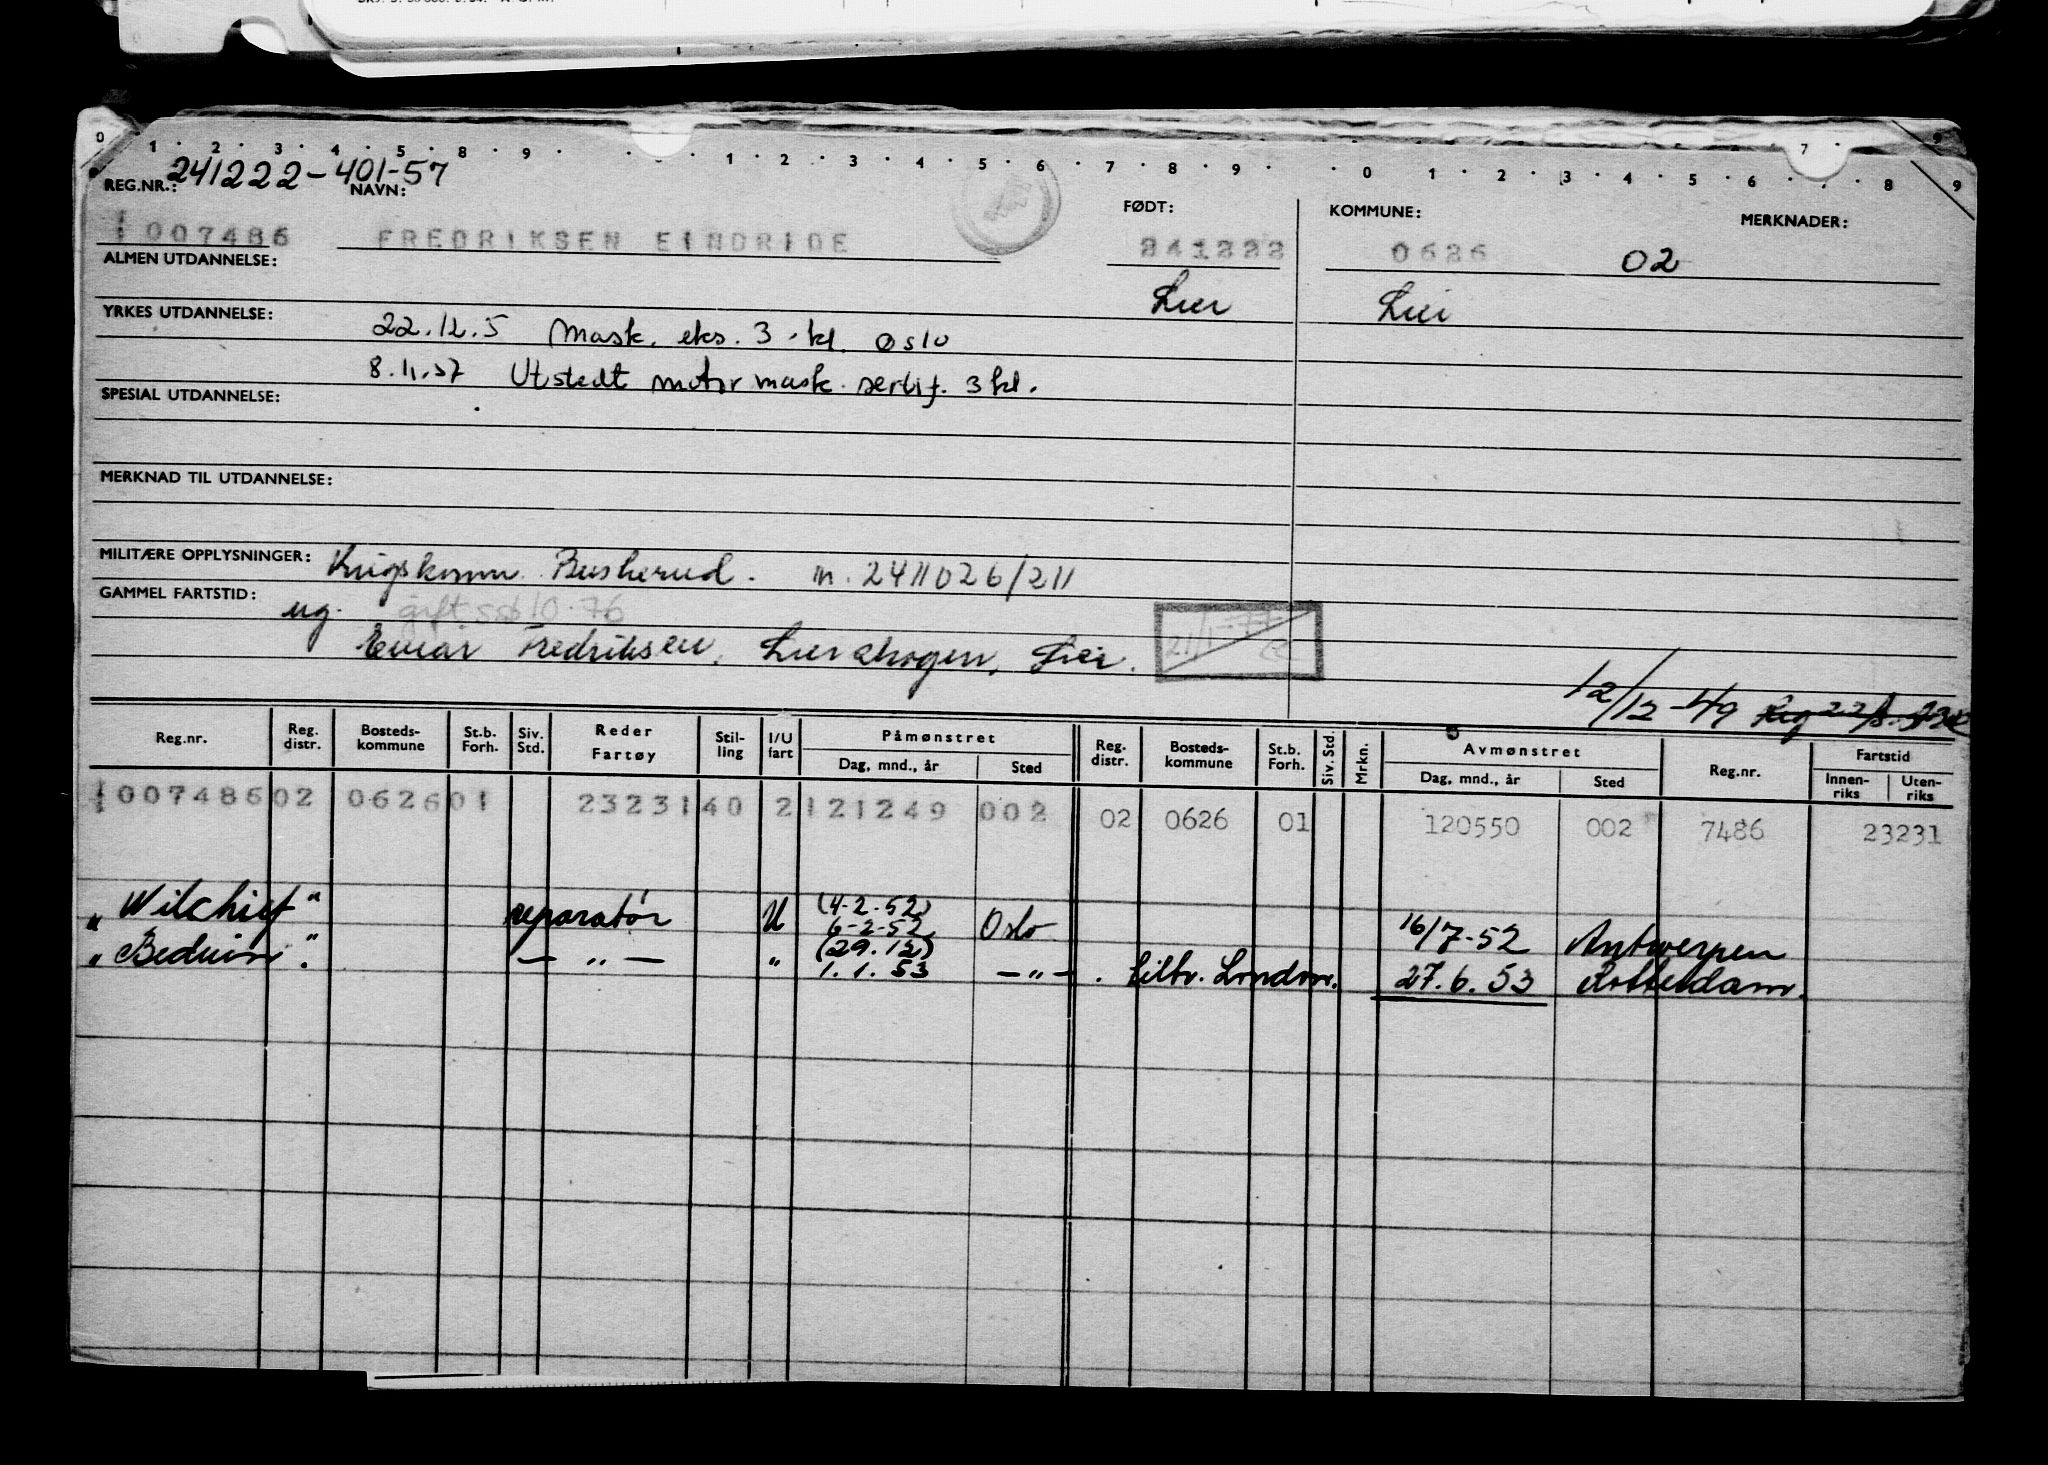 0 1 · 2 · 3 · 4 · 5 · 8 · 9 · · · 1 · 2 · 3 · 4 · 5 · 6 · 7 · 8 · 9 · · 0 · 1 · 2 · 3 · 4 · 5 · 6 · 7 · 8 · 9
REG.NR.: 241222-401-57
NAVN: FØDT: KOMMUNE: MERKNADER:
007486 FREDRIKSEN EINDRIDE 241222 0626 02
ALMEN UTDANNELSE: Lier Lier
YRKES UTDANNELSE: 22.12.5 Mask. eks. 3. kl. Oslo
8.11.57 Utstedt motormask. sertif. 3 kl.
SPESIAL UTDANNELSE:
MERKNAD TIL UTDANNELSE:
MILITÆRE OPPLYSNINGER: Krigskomm. Buskerud. m. 2411026/211
GAMMEL FARTSTID: ug. gift 10.76
Einar Fredriksen, Lierskogen, Lier. 21/1-77
12/12-49
Reg.nr. Reg. distr. Bosteds-kommune St.b. Forh. Siv. Std. Reder Fartøy Stil-ling I/U fart Påmønstret Dag, mnd., år Sted Reg. distr. Bosteds-kommune St.b. Forh. Siv. Std. Mrkn. Avmønstret Dag, mnd., år Sted Reg.nr. Fartstid Innen-riks Uten-riks
007486 02 0626 01 23231 40 2 121249 002 02 0626 01 120550 002 7486 23231
"Wilchief" reparatør U (4-2-52) 6-2-52 Oslo 16/7-52 Antwerpen
"Beduin". — " — " (29.12) 1.1.53 — " — . tilbr. London. 27.6.53 Rotterdam.